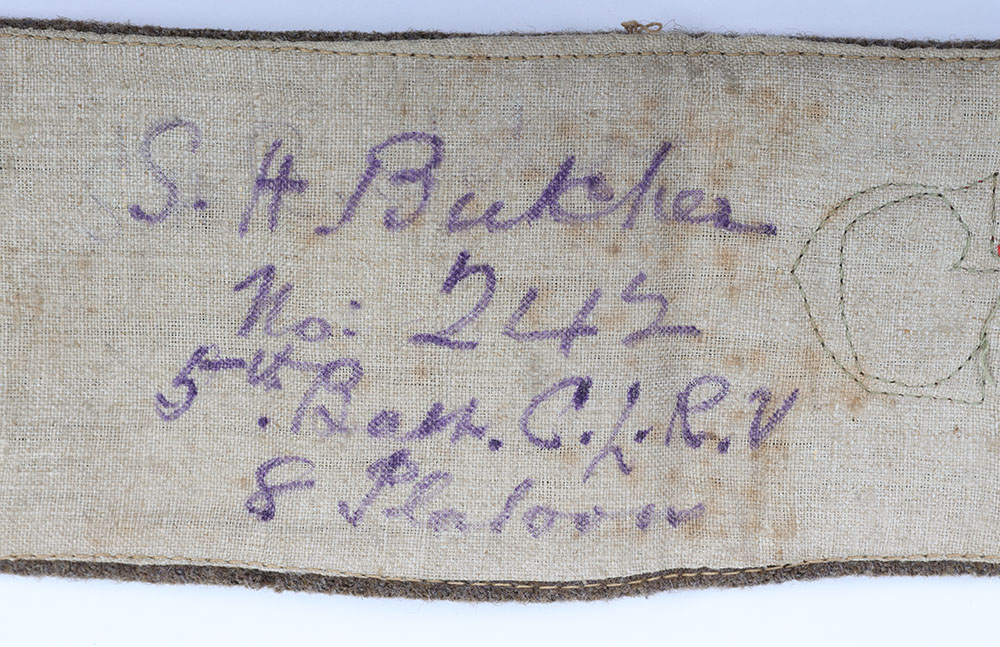 S. H Butcher
No: 242
5th. Batt. C.L.R.V
8 Platoon